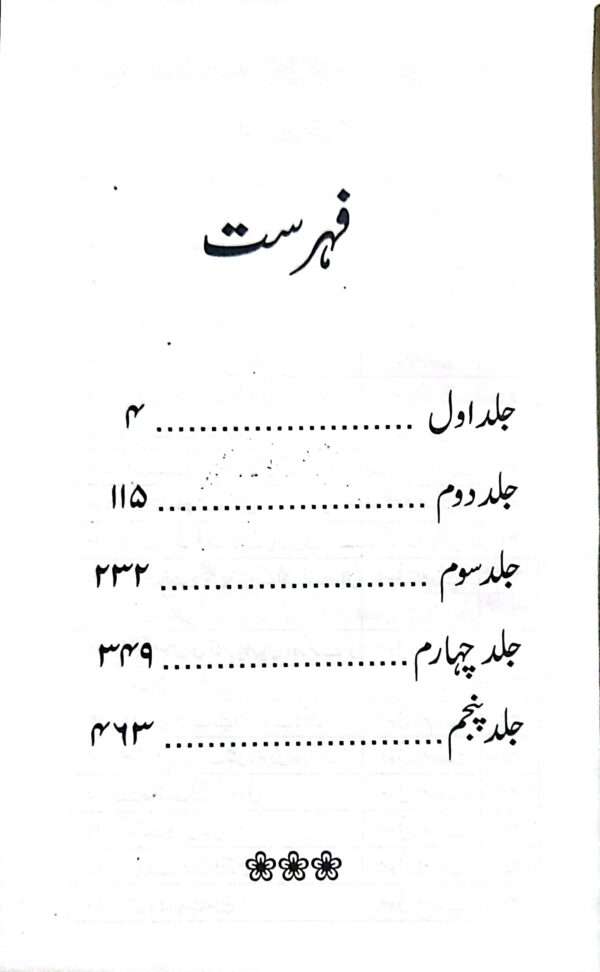 فہرست
جلد اول ........................ ۴
جلد دوم ......................... ۱۱۵
جلد سوم ......................... ۲۳۲
جلد چہارم ....................... ۳۴۹
جلد پنجم .......................... ۴۶۳